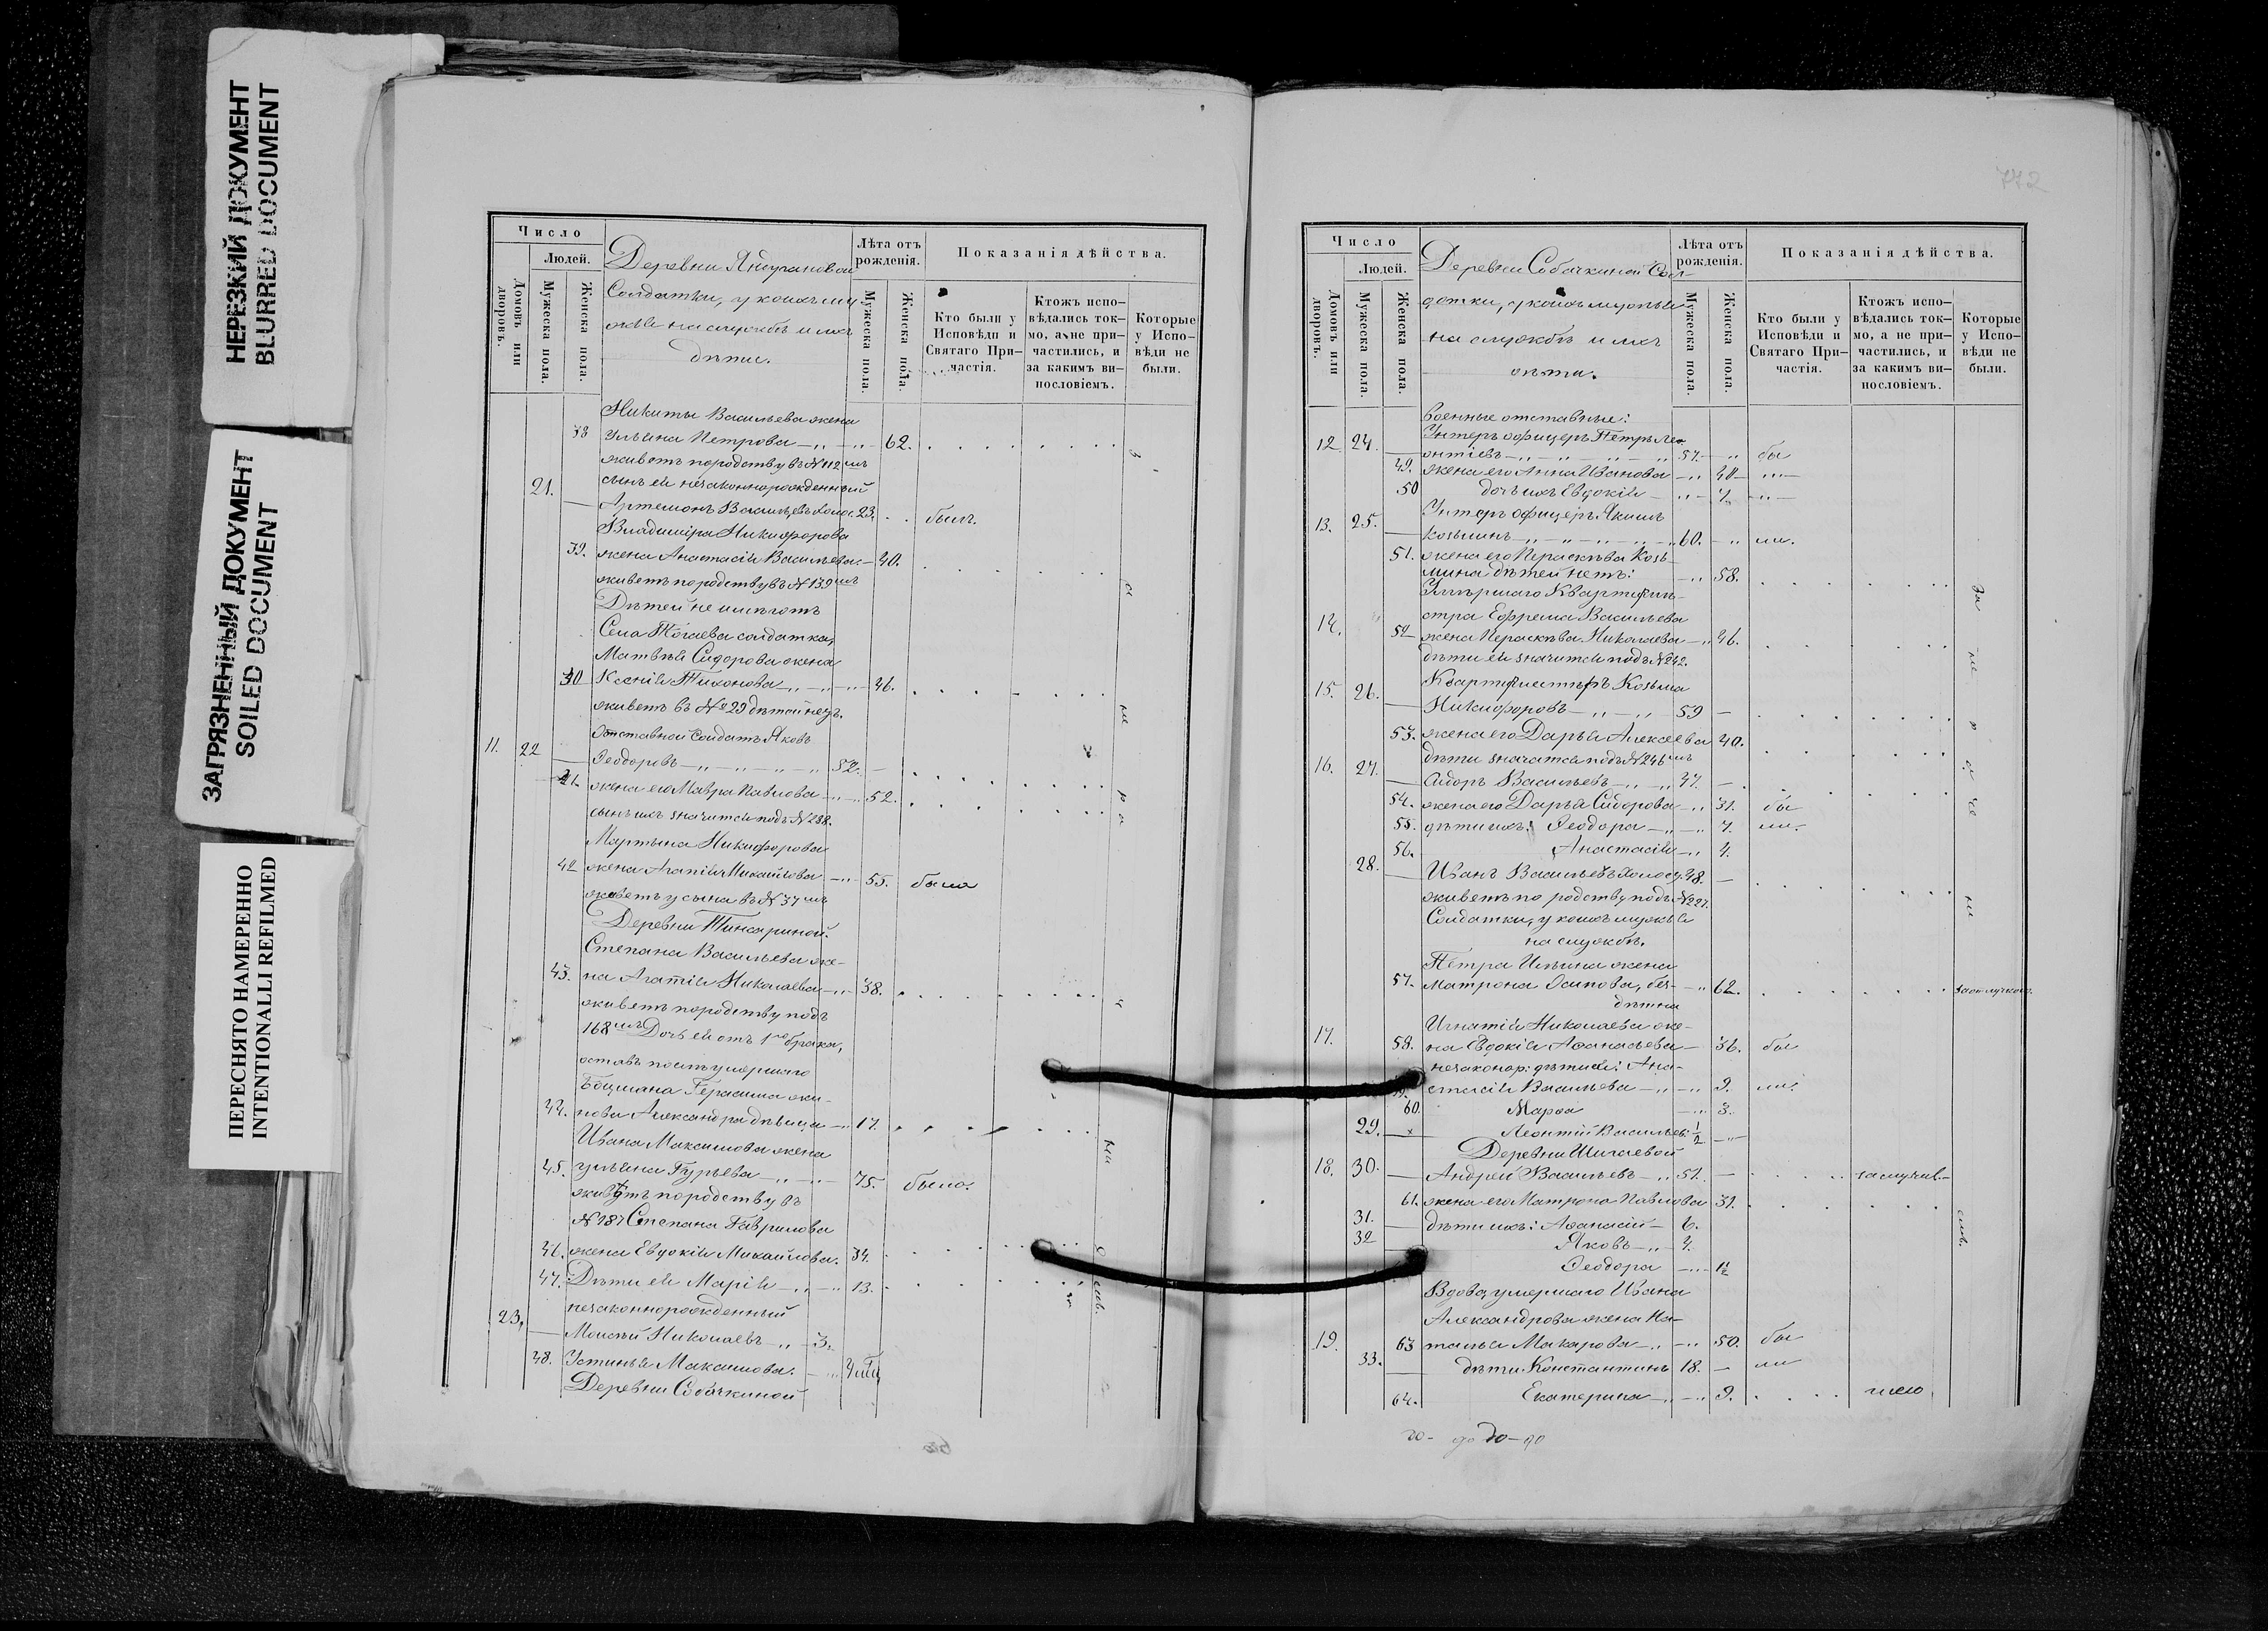 НЕРЕЗКИЙ ДОКУМЕНТ
BLURRED DOCUMENT
ЗАГРЯЗНЕННЫЙ ДОКУМЕНТ
SOILED DOCUMENT
ПЕРЕСНЯТО НАМЕРЕННО
INTENTIONALLI REFILMED
Число
Людей.
Домовъ или дворовъ.
Мужеска пола.
Женска пола.
Деревни
Солдатки, у коихъ му-
жья на службѣ и ихъ
дѣти.
Лѣта отъ рожденія.
Мужеска пола.
Женска пола.
Показанія дѣйства.
Кто были у Исповѣди и Святаго При-частія.
Ктожъ испо-вѣдались ток-мо, а не при-частились, и за какимъ ви-нословіемъ.
Которые у Испо-вѣди не были.
Никиты Васильева жена
38 Ульяна Петрова 62.
живетъ по родству въ № 112 мъ
21. сынъ ея незаконнорожденный
Артемонъ Васильевъ холос. 23. былъ.
Владиміра Никифорова
39. жена Анастасія Васильева 40.
живетъ по родству въ № 139 мъ
Дѣтей не имѣютъ
Села Тогаева солдатка,
Матвѣя Сидорова жена
40 Ксенія Тихонова 46.
живетъ въ № 29 дѣтей нетъ.
11. 22 Отставной солдатъ Яковъ
Ѳеодоровъ 52.
41. жена его Мавра Павлова 52.
сынъ ихъ значится подъ № 238.
Мартына Никифорова
42 жена Агапія Михайлова 55. была
живетъ у сына въ № 37 мъ
Деревни Тинсариной.
Степана Васильева же-
43. на Агапія Николаева 38.
живетъ по родству подъ
168 мъ Дочь ея отъ 1 го брака,
оставъ послѣ умершаго
Боцмана Герасима
44. Александра дѣвица 17.
Ивана Максимова жена
45. Ульяна Гурьева 75. была.
живутъ по родству въ
№ 187 Степана Гаврилова
46. жена Евдокія Михайлова. 34.
47. Дѣти ея Марія 13.
незаконнорожденный
23. Моисей Николаевъ 3.
48. Устинья Максимова.
Деревни Собачкиной
за не ра чи ем.
772
Число
Людей.
Домовъ или дворовъ.
Мужеска пола.
Женска пола.
Деревни Собачкиной Сол-
датки, у коихъ мужья
на службѣ и ихъ
дѣти.
Лѣта отъ рожденія.
Мужеска пола.
Женска пола.
Показанія дѣйства.
Кто были у Исповѣди и Святаго При-частія.
Ктожъ испо-вѣдались ток-мо, а не при-частились, и за какимъ ви-нословіемъ.
Которые у Испо-вѣди не были.
Военные отставные:
12 24. Унтеръ офицеръ Петръ Ле-
онтіевъ 57. бы
49. жена его Анна Иванова 40
50 дочь ихъ Евдокія 7.
13. 25. Унтеръ офицеръ Якимъ
Козьминъ 60. ли.
51. жена его Параскѣва Козь-
мина дѣтей нетъ: 58.
Умершаго Квартирми-
14. стра Ефрема Васильева
52 жена Параскѣва Николаева 46.
дѣти ея значится подъ № 242.
15. 26. Квартирмистръ Козьма
Никифоровъ 59
53. жена его Дарья Алексѣева 40.
дѣти значатся подъ № 246 мъ
16. 27. Сидоръ Васильевъ 47.
54. жена его Дарья Сидорова 31. бы
55. дѣти ихъ: Ѳеодора 7. ли.
56. Анастасія 4.
28. Иванъ Васильевъ холос. 48.
живетъ по родству подъ № 227.
Солдатки, у коихъ мужья
на службѣ.
Петра Ильина жена
57. Матрона Осипова, без- 62.
дѣтна
17. Игнатія Николаева же-
58. на Евдокія Аѳанасьева 36. бы
незаконор: дѣти ея: Ана-
59. стасія Васильева 9. ли.
60. Марѳа 3.
29. Леонтій Васильев. 1/2
Деревни Шигаевой
18. 30. Андрей Васильевъ 51.
61. жена его Матрона Павлова 31.
31. дѣти ихъ: Аѳанасій 6.
32 Яковъ 4.
Ѳеодора 1/2
Вдова, умершаго Ивана
Александрова жена На-
19. 63 талья Макарова 50. бы
33. дѣти Константинъ 18. ли
64. Екатерина 9.
за не ра че ни ем.